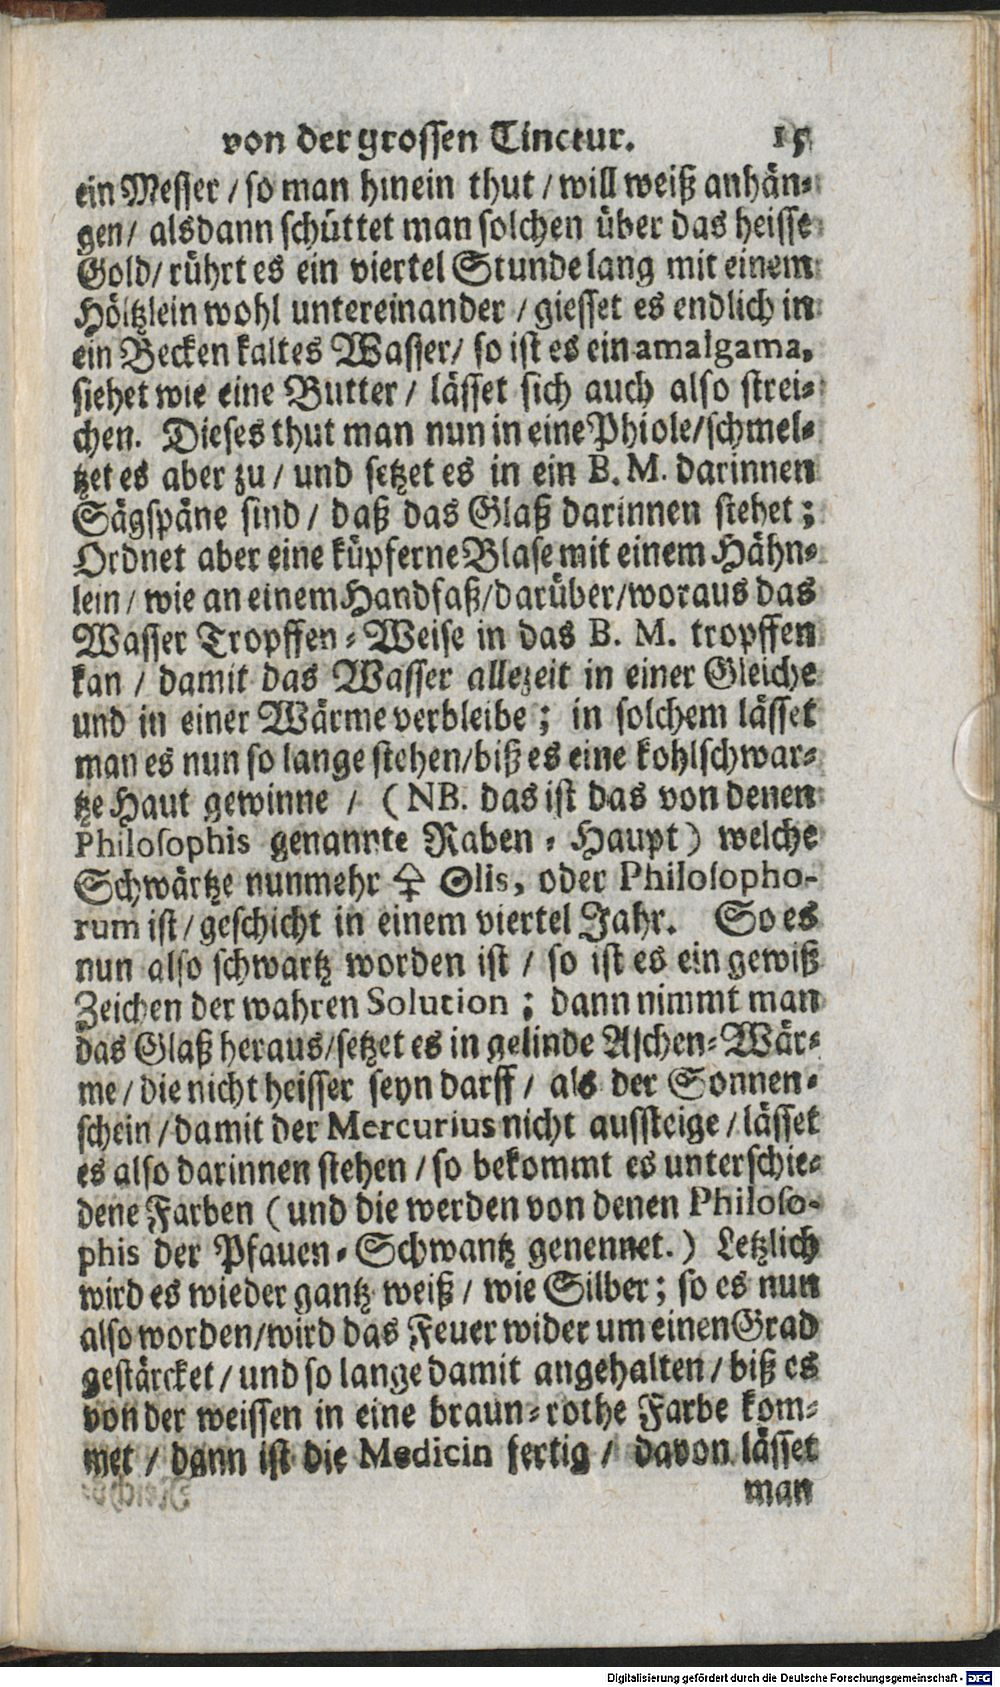 von der grossen Tinctur. 15
ein Messer / so man hinein thut / will weiß anhän-
gen / alsdann schüttet man solchen über das heisse
Gold / rührt es ein viertel Stunde lang mit einem
Höltzlein wohl untereinander / giesset es endlich in
ein Becken kaltes Wasser / so ist es ein amalgama,
siehet wie eine Butter / lässet sich auch also strei-
chen. Dieses thut man nun in eine Phiole / schmel-
tzet es aber zu / und setzet es in ein B. M. darinnen
Sägspäne sind / daß das Glaß darinnen stehet;
Ordnet aber eine küpferne Blase mit einem Hähn-
lein / wie an einem Handfaß / darüber / woraus das
Wasser Tropffen-Weise in das B. M. tropffen
kan / damit das Wasser allezeit in einer Gleiche
und in einer Wärme verbleibe; in solchem lässet
man es nun so lange stehen / biß es eine kohlschwar-
tze Haut gewinne / (NB. das ist das von denen
Philosophis genannte Raben-Haupt) welche
Schwärtze nunmehr 🜍 ☉lis, oder Philosopho-
rum ist / geschicht in einem viertel Jahr. So es
nun also schwartz worden ist / so ist es ein gewiß
Zeichen der wahren Solution; dann nimmt man
das Glaß heraus / setzet es in gelinde Aschen-Wär-
me / die nicht heisser seyn darff / als der Sonnen-
schein / damit der Mercurius nicht aussteige / lässet
es also darinnen stehen / so bekommt es unterschie-
dene Farben (und die werden von denen Philoso-
phis der Pfauen-Schwantz genennet.) Letzlich
wird es wieder gantz weiß / wie Silber; so es nun
also worden / wird das Feuer wider um einen Grad
gestärcket / und so lange damit angehalten / biß es
von der weissen in eine braun-rothe Farbe kom-
met / dann ist die Medicin fertig / davon lässet
man
Digitalisierung gefördert durch die Deutsche Forschungsgemeinschaft - DFG